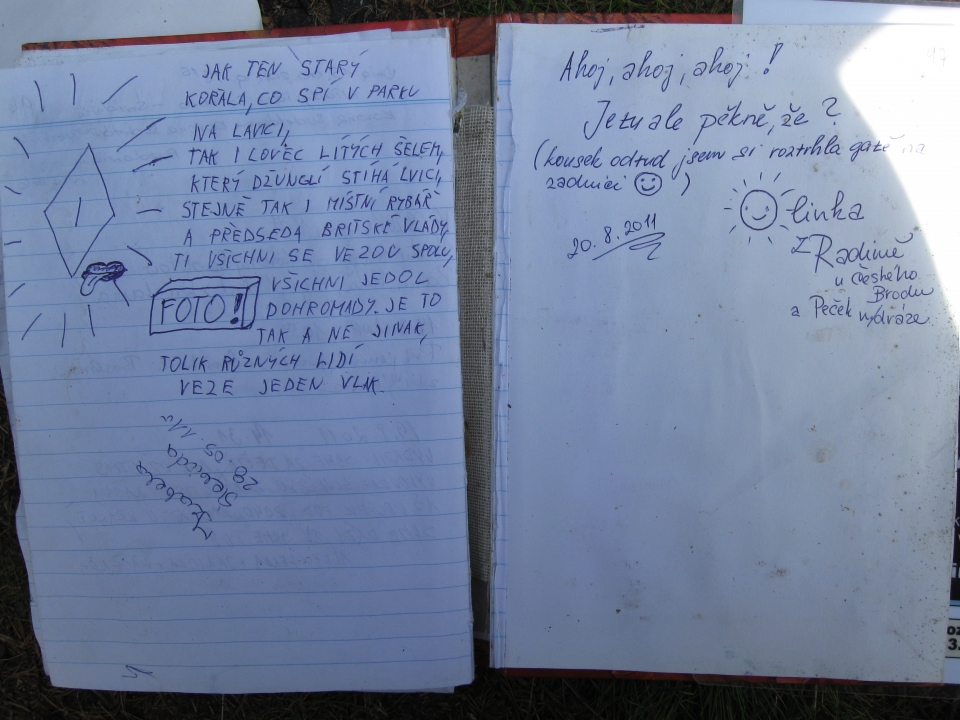 JAK TEN STARÝ
KOŘALA, CO SPÍ V PARKU
NA LAVICI,
TAK I LOVEC LITÝCH ŠELEM,
KTERÝ DŽUNGLÍ STÍHÁ LVICI,
STEJNĚ TAK I MÍSTNÍ RYBÁŘ
A PŘEDSEDA BRITSKÉ VLÁDY,
TI VŠICHNI SE VEZOU SPOLU,
VŠICHNI JEDOU
FOTO!
DOHROMADY. JE TO
TAK A NE JINAK,
TOLIK RŮZNÝCH LIDÍ
VEZE JEDEN VLAK.
Ahoj, ahoj, ahoj!
Je tu ale pěkně, že?
(kousek odtud jsem si roztrhla gatě na
zadnici )
linka
20.8.2011
z Radimě
u Českého
Brodu
a Peček